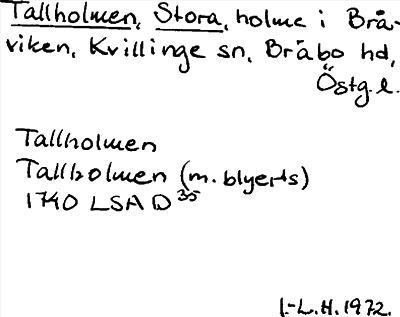 Tallholmen, Stora, holme i Brå-
viken, Kvillinge sn, Bråbo hd,
Östg. l.
Tallholmen
Tallholmen (m. blyerts)
1740 LSA D 35
I.-L.H. 1972.